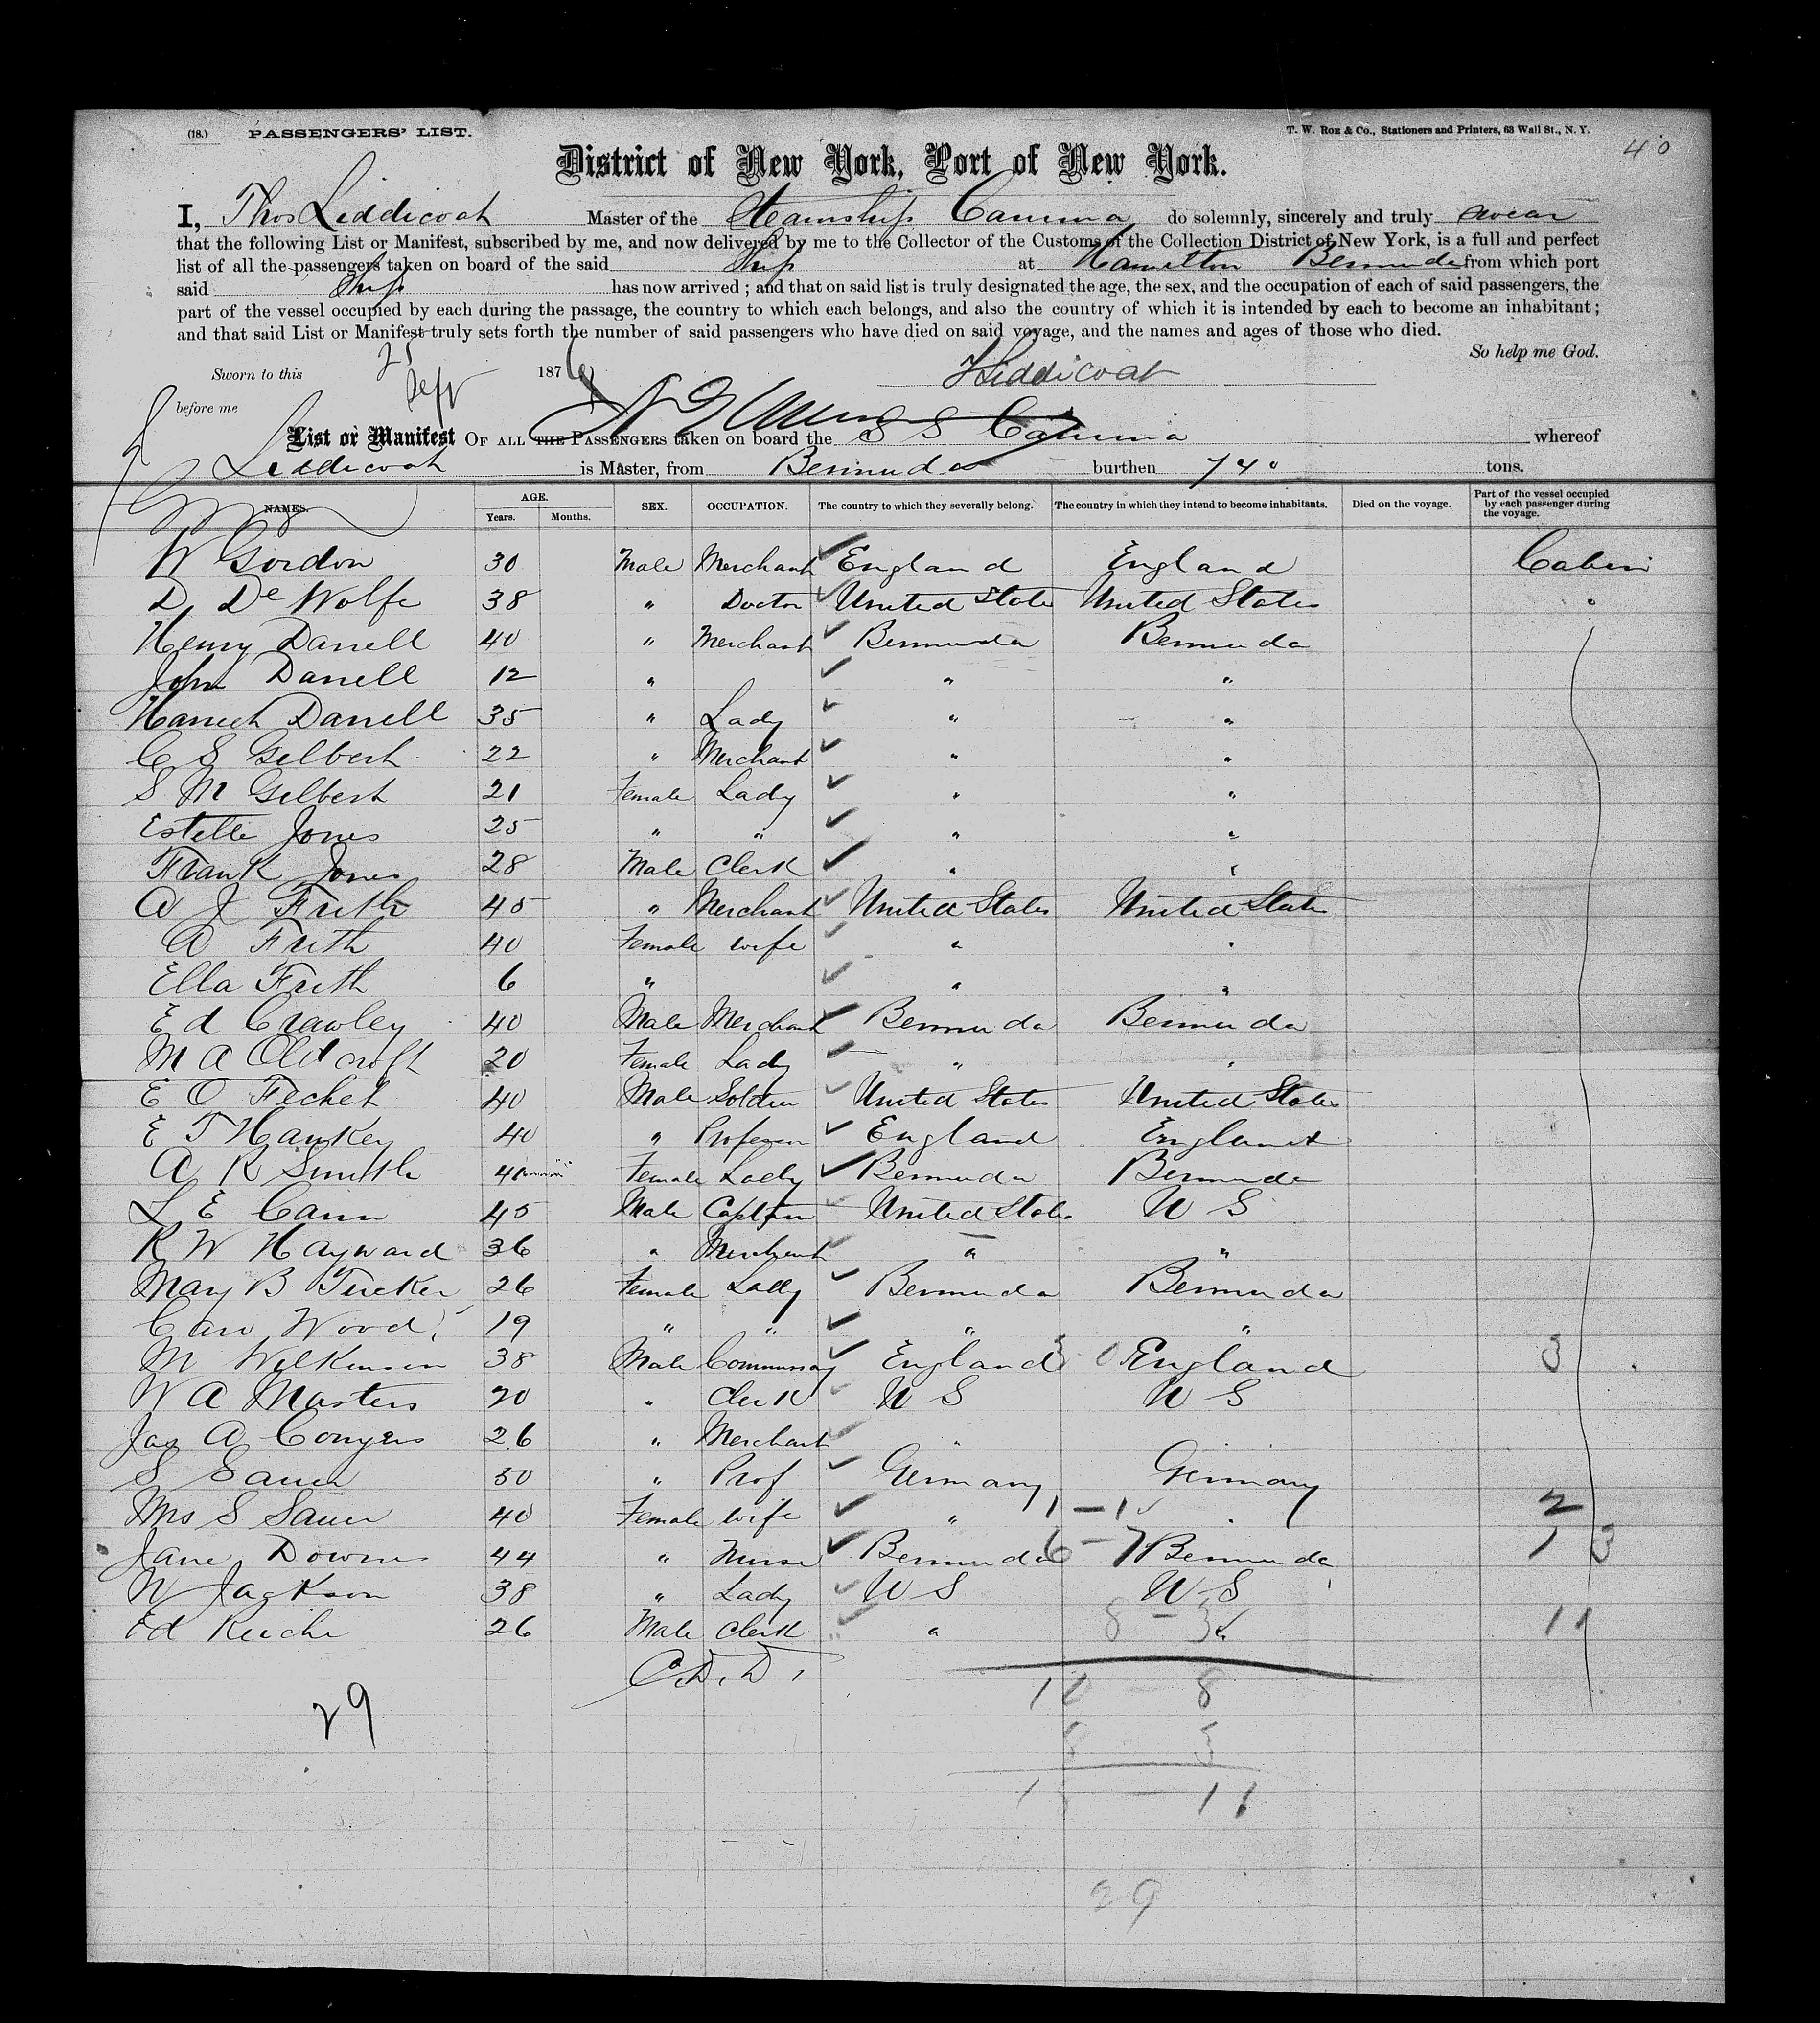 (18.) PASSENGERS' LIST. T. W. ROE & Co., Stationers and Printers, 63 Wall St., N. Y.
40
District of New York, Port of New York.
I, Thos Liddicoat Master of the Steamship Canima do solemnly, sincerely and truly swear
that the following List or Manifest, subscribed by me, and now delivered by me to the Collector of the Customs of the Collection District of New York, is a full and perfect
list of all the passengers taken on board of the said Ship at Hamilton Bermuda from which port
said Ship has now arrived ; and that on said list is truly designated the age, the sex, and the occupation of each of said passengers, the
part of the vessel occupied by each during the passage, the country to which each belongs, and also the country of which it is intended by each to become an inhabitant ;
and that said List or Manifest truly sets forth the number of said passengers who have died on said voyage, and the names and ages of those who died.
So help me God.
Sworn to this 25 Sept 1876 Liddicoat
before me
List or Manifest OF ALL THE PASSENGERS taken on board the S S Canima whereof
Liddicoat is Master, from Bermuda burthen 740 tons.
NAMES. AGE. Years. Months. SEX. OCCUPATION. The country to which they severally belong. The country in which they intend to become inhabitants. Died on the voyage. Part of the vessel occupied by each passenger during the voyage.
W Gordon 30 Male Merchant England England Cabin
D De Wolfe 38 " Doctor United State United States "
Henry Darrell 40 " Merchant Bermuda Bermuda
John Darrell 12 " " "
Darrell 35 " Lady " "
C S Gilbert 22 " Merchant " "
S M Gilbert 21 Female Lady " "
Estelle Jones 25 " " " "
Frank Jones 28 Male Clerk " "
A J Frith 45 " Merchant United States United States
A Frith 40 Female wife " "
Ella Frith 6 " " "
Ed Crawley 40 Male Merchant Bermuda Bermuda
M A 20 Female Lady " "
E O Fechet 40 Male United States United States
E T Hankey 40 " Professor England England
A R Smith Female Lady Bermuda Bermuda
L E Cann 45 Male Captain United States U S
R W Hayward 36 " Merchant " "
Mary B Tucker 26 Female Lady Bermuda Bermuda
Wood 19 " " " "
M Wilkinson 38 Male Commissary England England 3
W A Masters 20 " Clerk U S U S
Jas A Conyers 26 " Merchant " "
S Sauer 50 " Prof Germany Germany
Mrs S Sauer 40 Female wife " 1 - 1 " 2
Jane Downs 44 " Nurse Bermuda 6 - 7 Bermuda 1 3
W Jackson 38 " Lady U S U S
Ed 26 Male Clerk " 8 - 3 " 11
C. D. D.
8
29
11
29